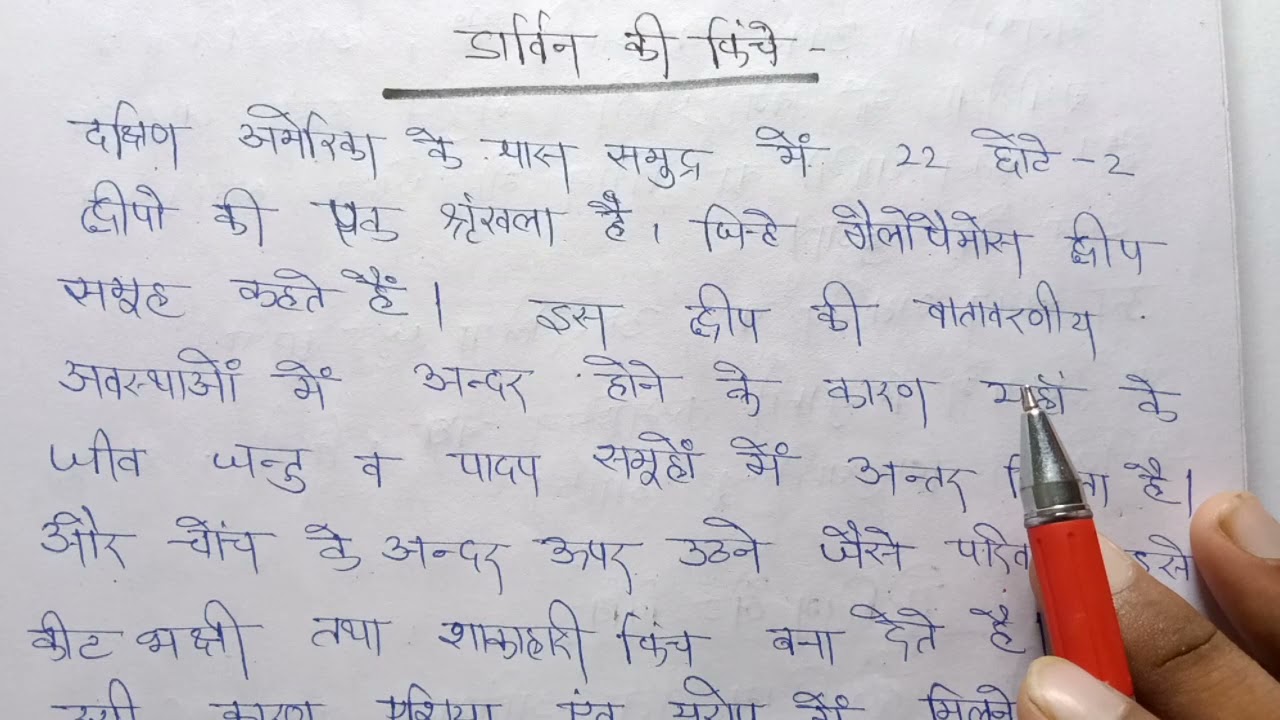 डार्विन की फिंचे -
दक्षिण अमेरिका के पास समुद्र में 22 छोटे - 2
द्वीपो की एक श्रृंखला है। जिन्हे गैलोपैगोस द्वीप
समूह कहते हैं। इस द्वीप की वातावरणीय
अवस्थाओं में अन्दर होने के कारण यहाँ के
जीव जन्तु व पादप समूहों में अन्तर है।
और चोंच के अन्दर ऊपर उठने जैसे इसे
कीट भक्षी तथा शाकाहारी फिंच बना देते है
कारण एशिया एंव यूरोप में मिलने